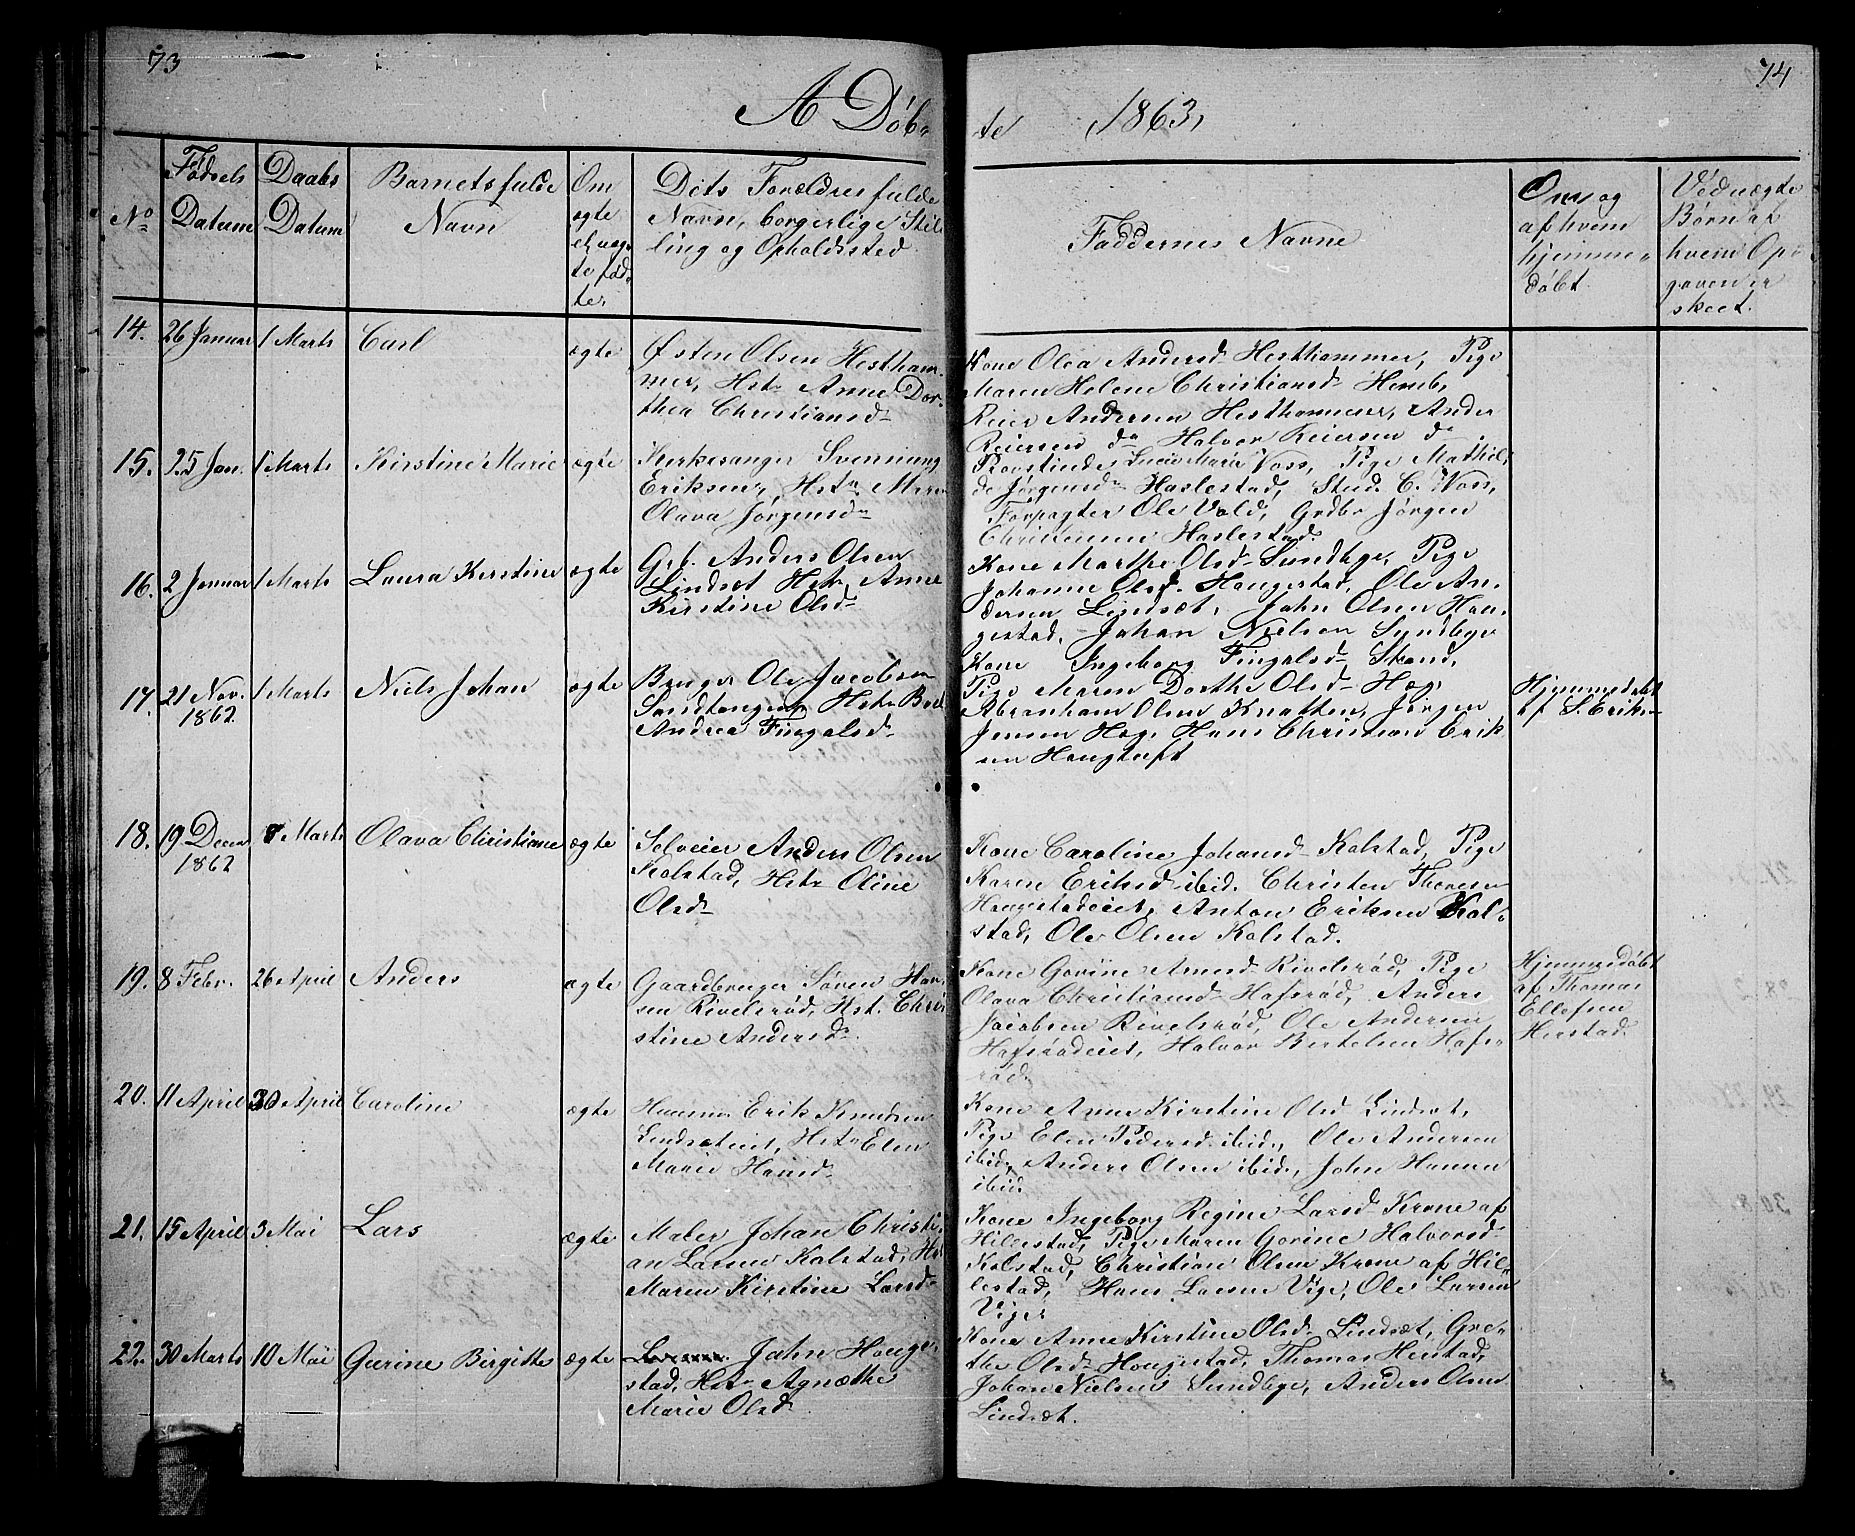 73
74
A Döb-
te 1863,
No
Fødsels
Datum
Daabs
Datum
Barnets fulde
Navn
Om
ægte
el. uæg-
te fød-
te
Dets Forældres fulde
Navn, borgerlige Stil
ling og Opholdssted
Faddernes Navne
Om og
af hvem
hjemme-
døbt
Ved uægte
Børn af
hvem Op-
gaven er
skeet.
14. 26 Januar 1 Marts Carl ægte
Østen Olsen Hestham-
mer, Hstr Anne Dor-
thea Christiansd
Kone Olea Andersd Hesthammer, Pige
Maren Helene Christiansd
Reier Andersen Hesthammer, Anders
Reiersen do Halvor Reiersen do
15. 25 Jan. 1 Marts Kirstine Marie ægte
Kirkesanger Svennung
Eriksen, Hstr Maren
Olava Jørgensd
Provstinde Lucie Marie Voss, Pige Mathil-
de Jørgensd Haslestad, Stud. C. Voss,
Forpagter Ole Vold, Grdbr Jørgen
Christensen Haslestad
16. 2 Januar 1 Marts Laura Kirstine ægte
Grb. Anders Olsen
Lindsæt Hstr. Anne
Kirstine Olsd
Kone Marthe Olsd Sundbye, Pige
Johanne Olsd. Haugestad, Ole An-
dersen Lindsæt, John Olsen Hau-
gestad, Johan Nielsen Sundbye
17. 21 Nov. 1862 1 Marts Niels Johan ægte
Bruger Ole Jacobsen
Sandtangen Hstr
Andrea Fingalsd
Kone Ingeborg Fingalsd Strand,
Pige Maren Dorthe Olsd Hæg,
Abraham Olsen Knatten, Jørgen
Jensen Hæg, Hans Christian Erik-
sen Haugtuft
Hjemmedøbt
af S. Eriks-
18. 19 Decem 1862 8 Marts Olava Christiane ægte
Selveier Anders Olsen
Kolstad, Hstr Oline
Olsd
Kone Caroline Johansd Kolstad, Pige
Karen Eriksd ibid. Christen Thoresen
Haugestadeiet, Anton Eriksen Kol-
stad, Ole Olsen Kolstad.
19. 8 Febr. 26 April Anders ægte
Gaardbruger Søren Han-
sen Rivelsrød, Hst. Chri
stine Andersd
Kone Govine Arnesd Rivelsrød, Pige
Olava Christiansd Hafsrød, Anders
Jacobsen Rivelsrød, Ole Andersen
Hafsrødeiet, Halvor Bertelsen Hafs-
rød
Hjemmedøbt
af Thomas
Ellefsen
Herstad
20. 11 April 30 April Caroline ægte
Huusm. Erik Knudsen
Lindsæteiet, Hstr Elen
Marie Hansd
Kone Anne Kirstine Olsd Lindsæt,
Pige Elen Pedersd ibid., Ole Andersen
ibid, Anders Olsen ibid., John Hansen
ibid
21. 15 April 3 Mai Lars ægte
Maler Johan Christi-
an Larsen Kolstad, Hst
Maren Kirstine Larsd
Kone Ingeborg Regine Larsd Krone af
Hillestad, Pige Maren Govine Halvorsd
Kolstad, Christian Olsen Krone af Hil-
lestad, Hans Larsen Vige, Ole Larsen
Vige
22. 30 Marts 10 Mai Gurine Birgitte ægte
John Hauge-
stad, Hstr Agnæthe
Marie Olsd
Kone Anne Kirstine Olsd Lindsæt, Gre-
the Olsd Haugestad, Thomas Herstad,
Johan Nielsen Sundbye, Anders Olsen
Lindsæt.